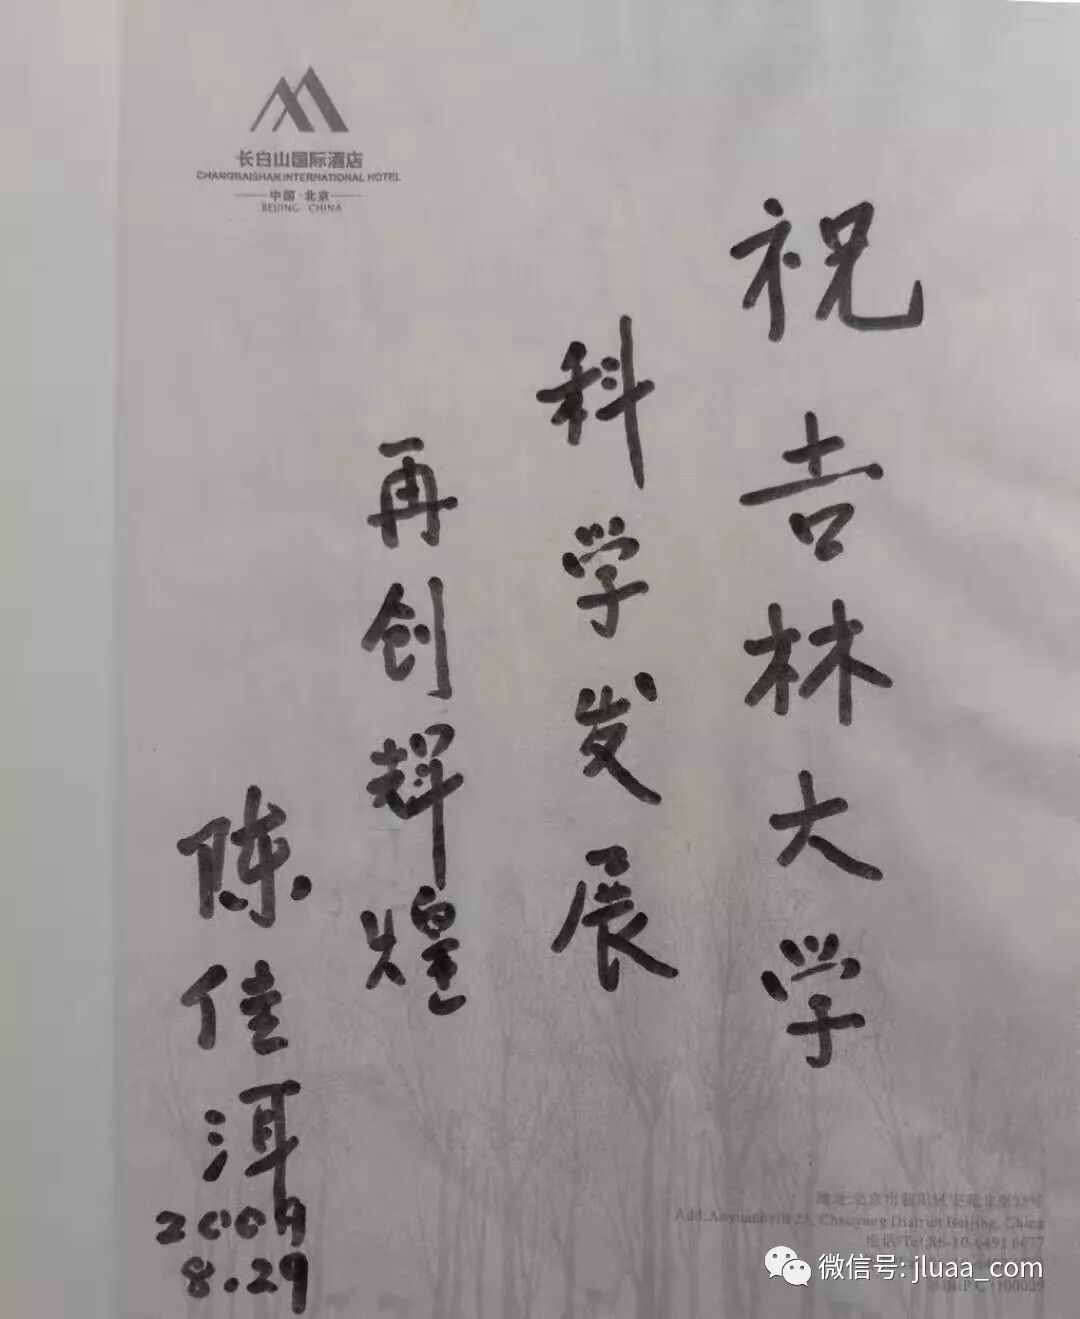 长白山国际酒店
CHANGBAISHAN INTERNATIONAL HOTEL
中国·北京
BEIJING CHINA
祝吉林大学
科学发展
再创辉煌
陈佳洱
2009
8.29
Add:Anyuanbeili 25, Chaoyang District Beijing, China
电话/Tel:86-10-6491 6677
微信号: jluaa_com